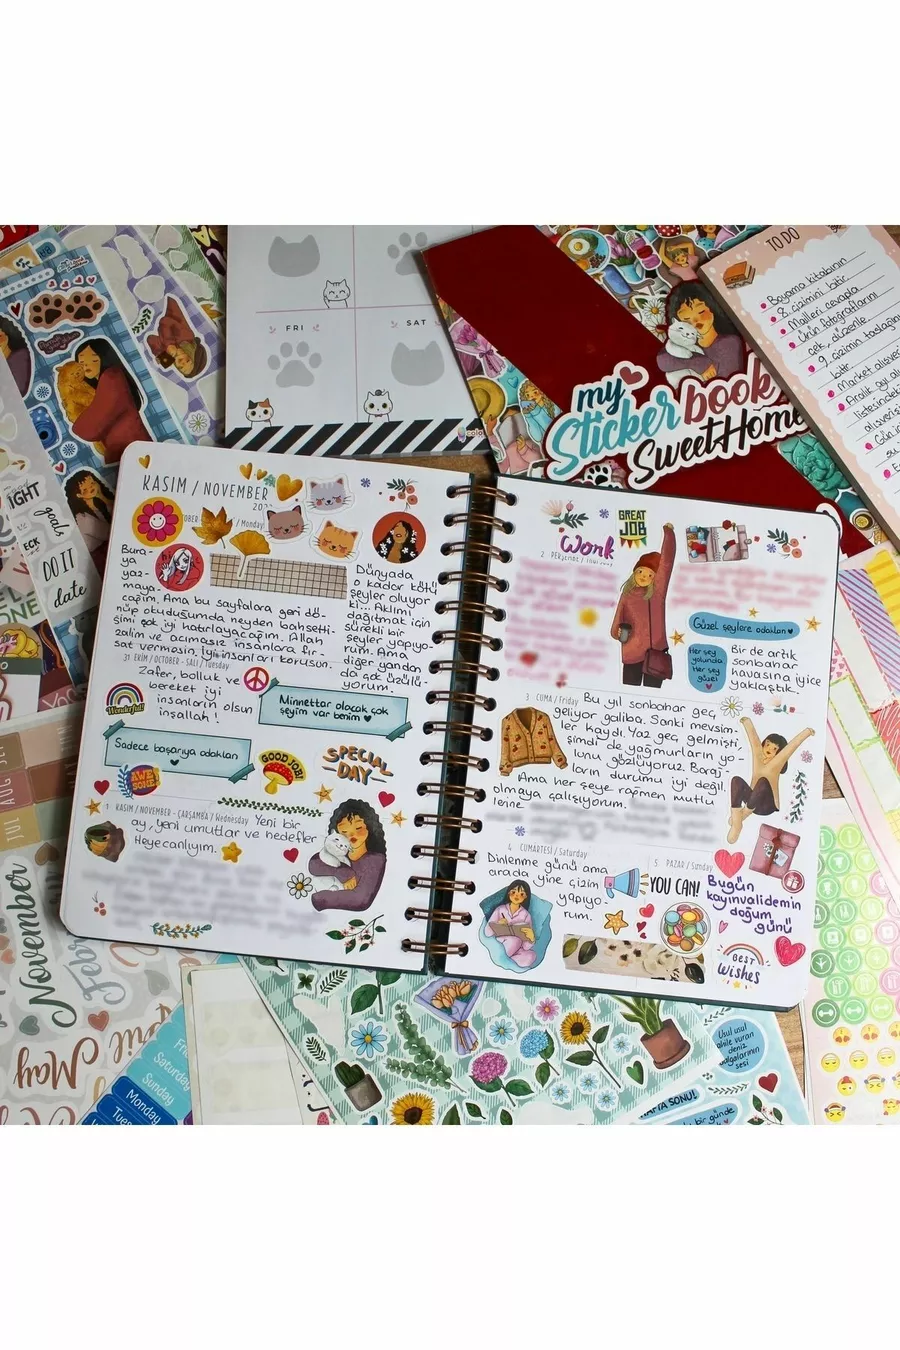 FRI
SAT
TO DO
Boyama kitabının
8. çizimini bitir
Mailleri cevapla
Ürün fotoğraflarını
çek, düzenle
9. çizimin
bitir
Market
Aralık
listesindeki
my
Sticker book
SweetHome
goals
DO IT
date
KASIM / NOVEMBER
/ Monday
Bura-
ya
yaz-
maya-
cağım. Ama bu sayfalara geri dö-
nüp okuduğumda neyden bahsetti-
ğimi çok iyi hatırlayacağım. Allah
zalim ve acımasız insanlara fır-
sat vermesin, iyi insanları korusun.
Dünyada
o kadar kötü
şeyler oluyor
ki... Aklımı
dağıtmak için
sürekli bir
şeyler yapıyo-
rum. Ama
diğer yandan
da çok üzülü-
yorum.
31 EKİM / OCTOBER - SALI / Tuesday
Zafer, bolluk ve
bereket iyi
insanların olsun
inşallah!
Wonderful!
Minnettar olacak çok
şeyim var benim
Sadece başarıya odaklan
AWESOME
GOOD JOB!
SPECIAL
-DAY-
1 KASIM / NOVEMBER - ÇARŞAMBA / Wednesday
Yeni bir
ay, yeni umutlar ve hedefler
Heyecanlıyım.
GREAT
JOB
Work
2 PERŞEMBE /
Güzel şeylere odaklan
Her şey
yolunda
Her şey
güzel
Bir de artık
sonbahar
havasına iyice
yaklaştık.
3 CUMA / Friday
Bu yıl sonbahar geç
geliyor galiba. Sanki mevsim-
ler kaydı. Yaz geç gelmişti,
şimdi de yağmurların yo-
lunu gözlüyoruz. Baraj-
ların durumu iyi değil.
Ama her şeye rağmen mutlu
olmaya çalışıyorum.
4 CUMARTESİ / Saturday
Dinlenme günü ama
arada yine çizim
yapıyo-
rum.
5 PAZAR / Sunday
YOU CAN!
Bugün
kayınvalidemin
doğum
günü
BEST
Wishes
November
May
Saturday
Sunday
Monday
Usul usul
deniz
dalgalarının
sesi
HAFTA SONU!